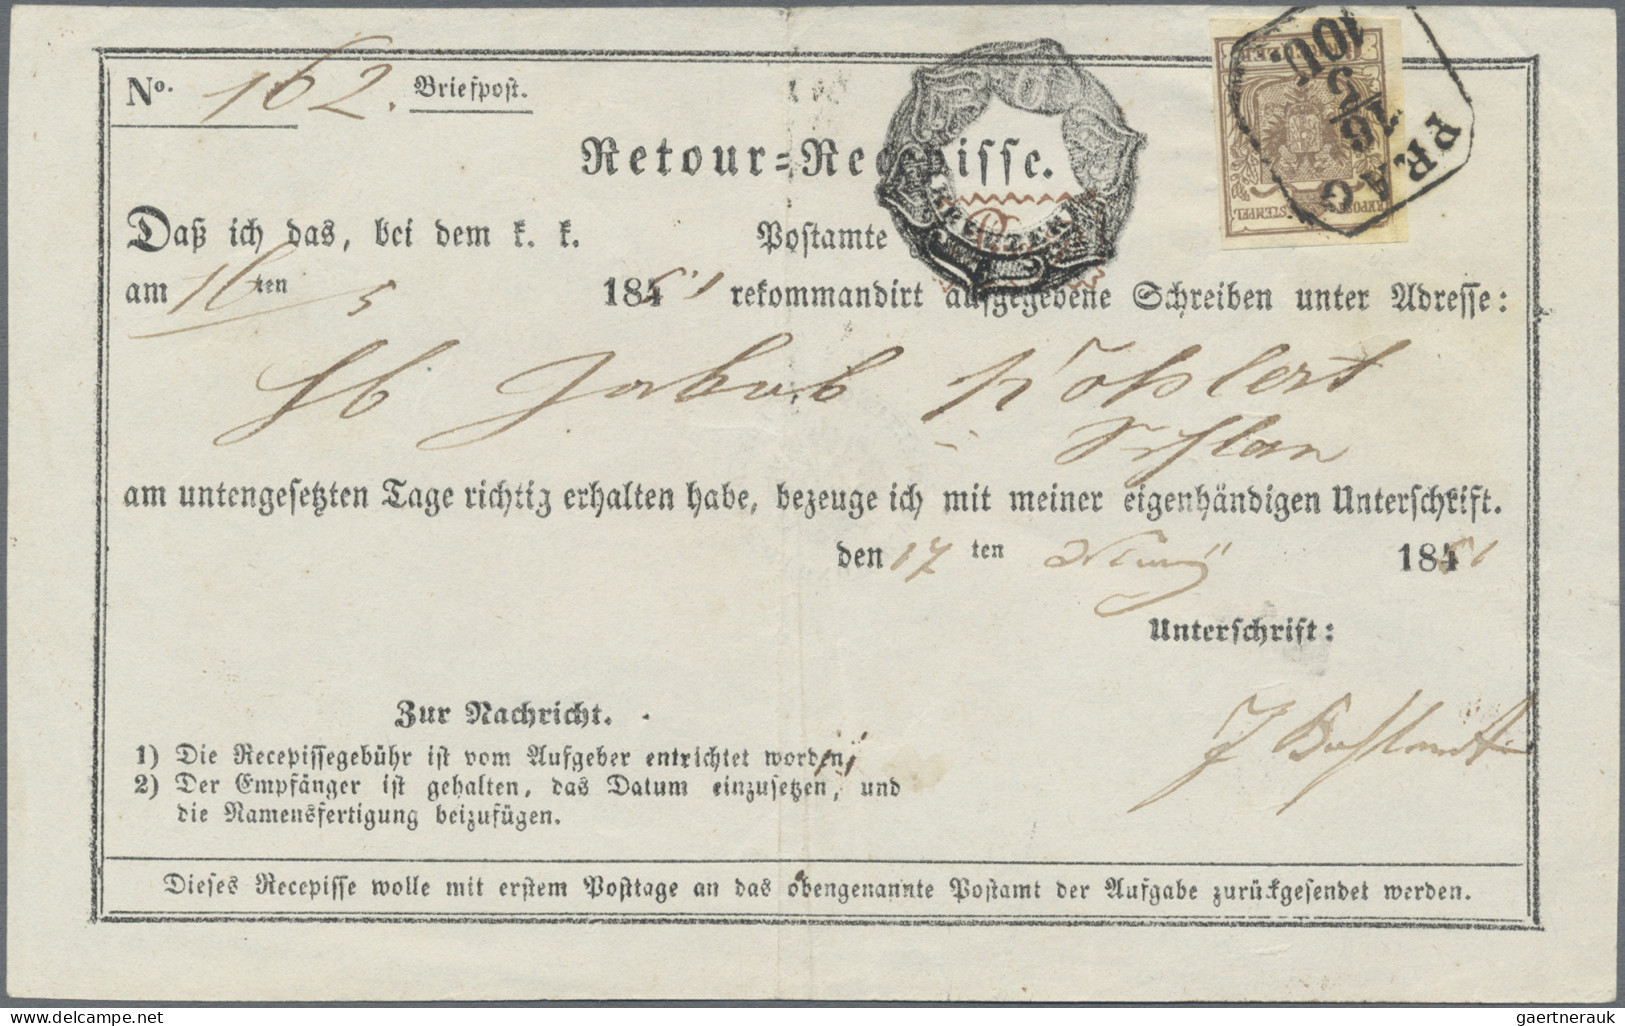 No. 162. Briefpost.
Retour=Recepisse.
Daß ich das, bei dem k. k. Postamte
am 16ten 5 1851 rekommandirt aufgegebene Schreiben unter Adresse:
Jakob
am untengesetzten Tage richtig erhalten habe, bezeuge ich mit meiner eigenhändigen Unterschrift.
den 17 ten 1851
Unterschrift:
Zur Nachricht.
1) Die Recepissegebühr ist vom Aufgeber entrichtet worden;
2) Der Empfänger ist gehalten, das Datum einzusetzen, und
die Namensfertigung beizufügen.
Dieses Recepisse wolle mit erstem Posttage an das obengenannte Postamt der Aufgabe zurückgesendet werden.
PRAG
16/5
10U.
KREUZER
STEMPEL
gaertnerauk